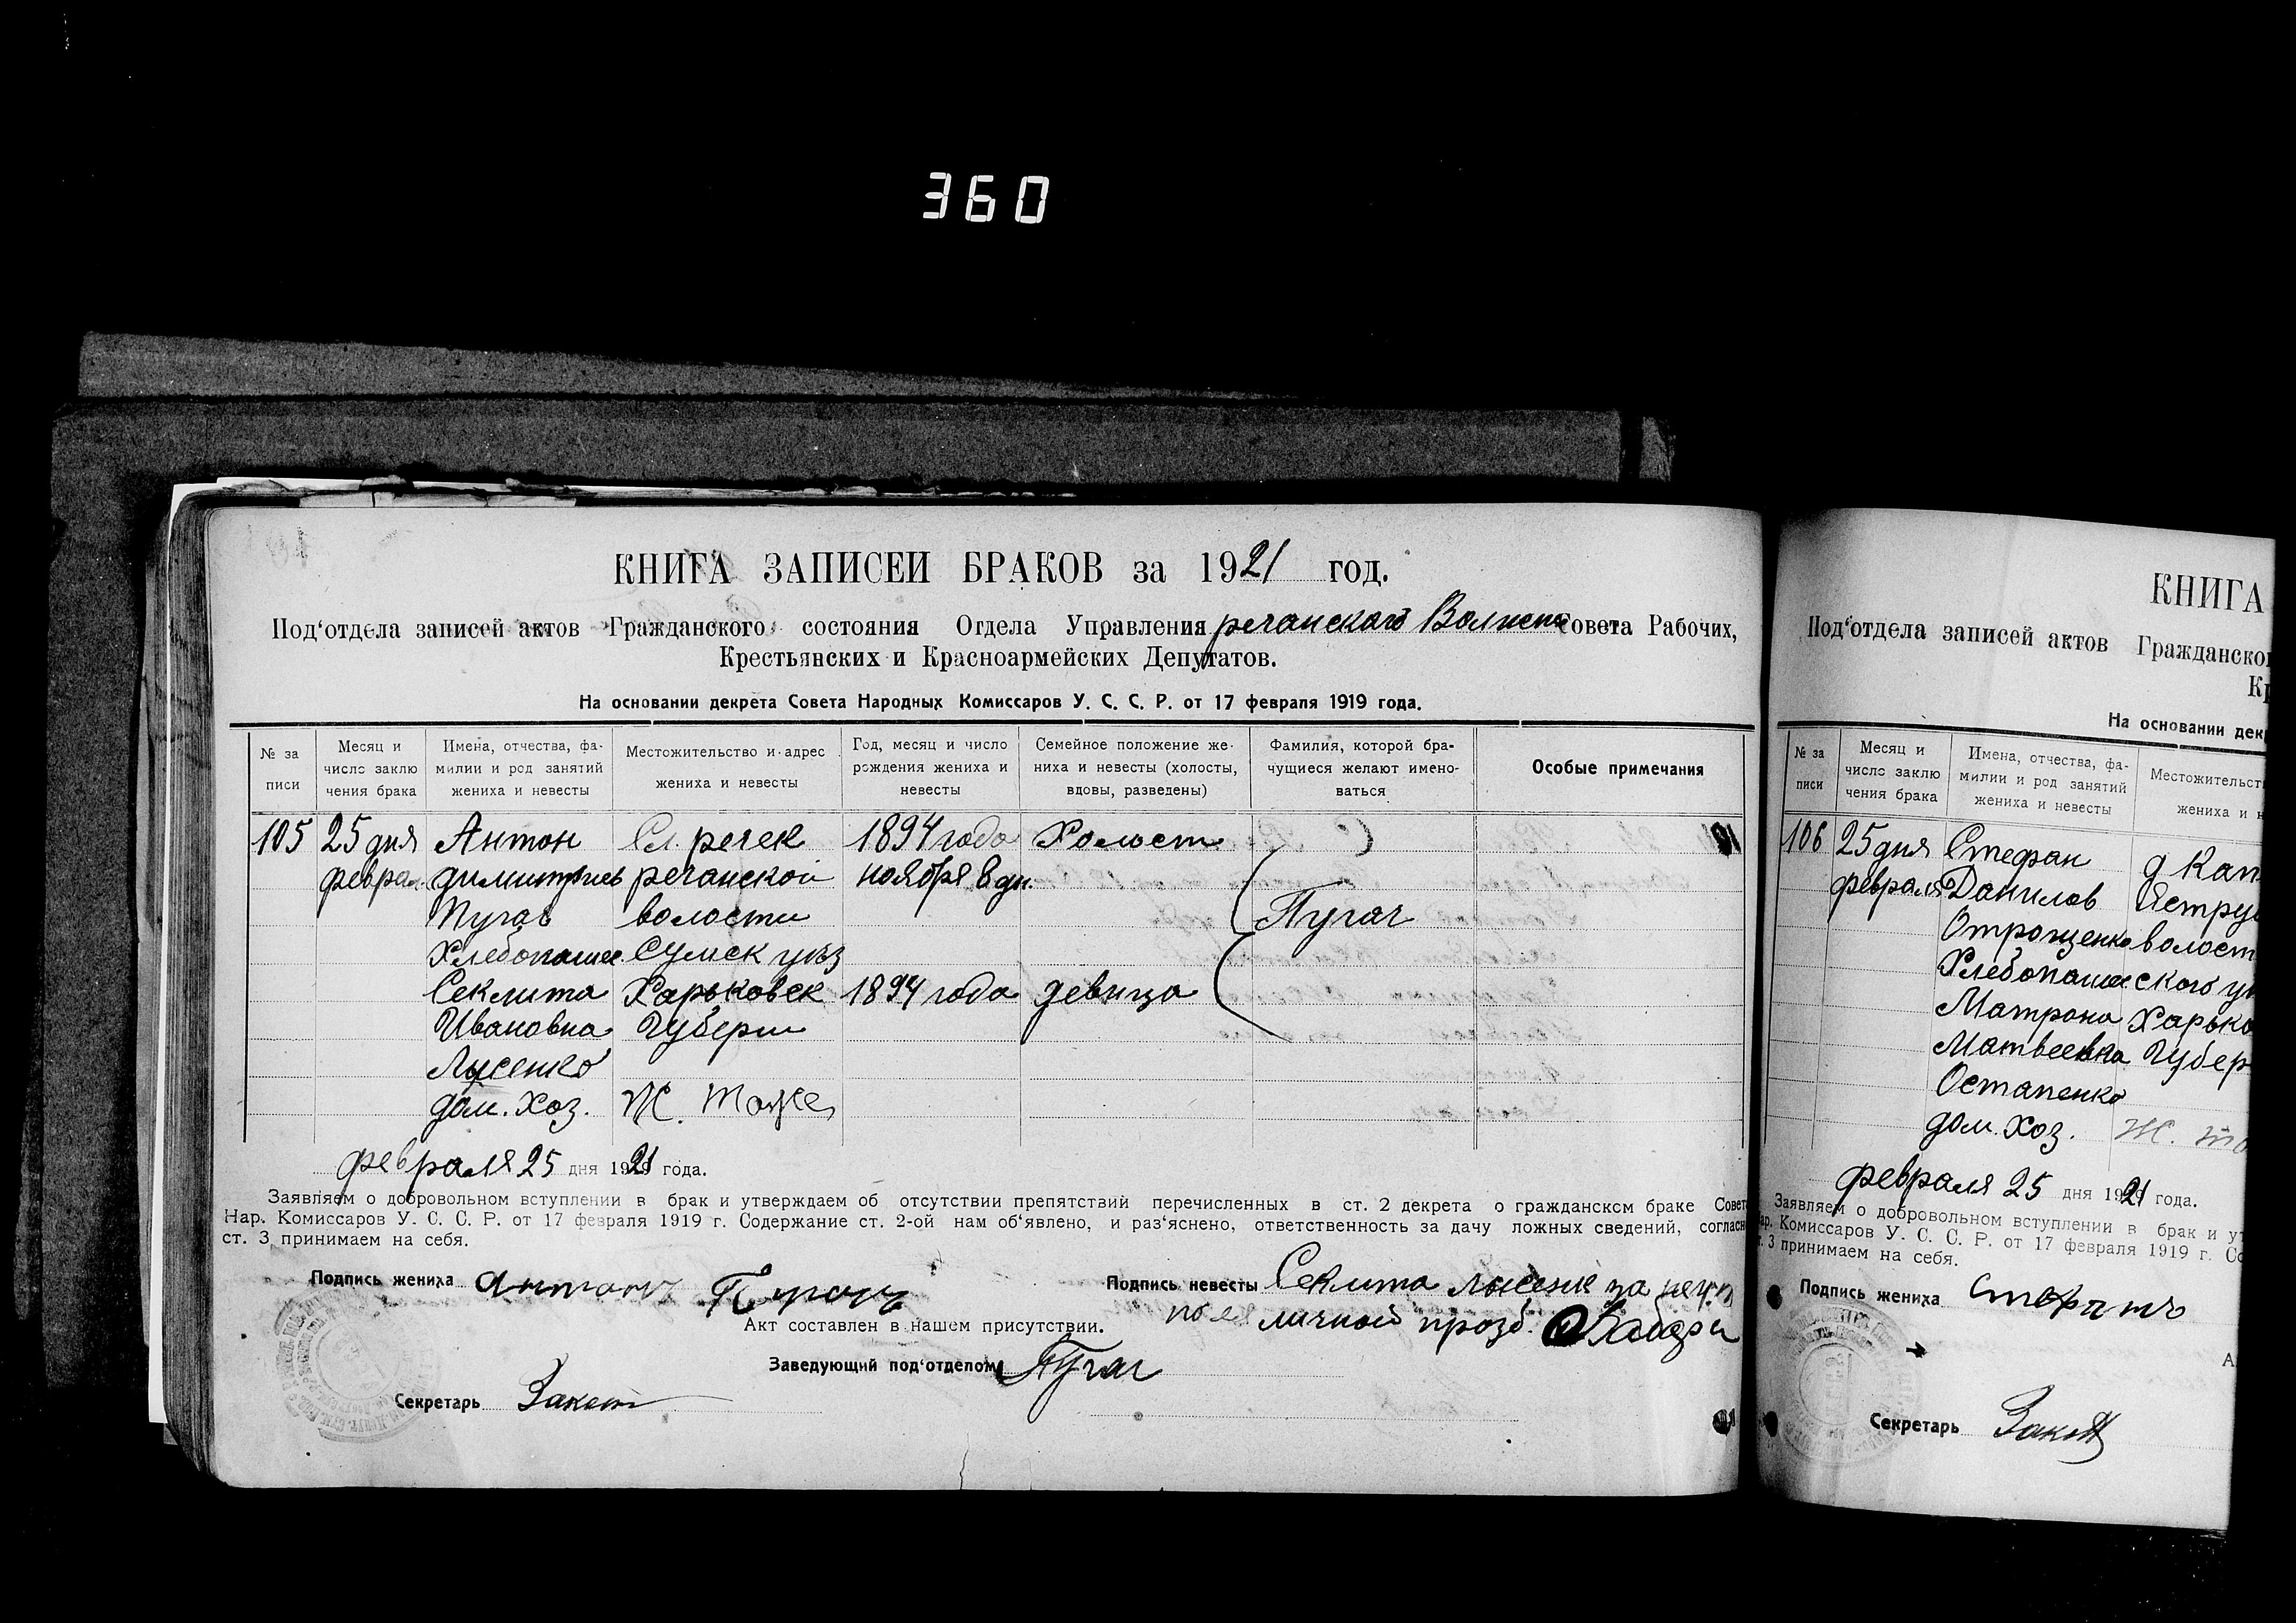 360
КНИГА ЗАПИСЕИ БРАКОВ за 1921 год.
Под‘отдела записей актов Гражданского состояния Отдела Управления речанского Волисп Совета Рабочих,
Крестьянских и Красноармейских Депутатов.
На основании декрета Совета Народных Комиссаров У. С. С. Р. от 17 февраля 1919 года.
№ за писи
Месяц и число заклю чения брака
Имена, отчества, фа- милии и род занятий жениха и невесты
Местожительство и адрес жениха и невесты
Год, месяц и число рождения жениха и невесты
Семейное положение же- ниха и невесты (холосты, вдовы, разведены)
Фамилия, которой бра- чущиеся желают имено- ваться
Особые примечания
105 25 дня Антон Сл. речек 1894 года Холост
феврал. димитриев речанской ноября 8 дн.
Пугач волости Пугач
Хлебопашец Сумск уез
Секлита Харьковск 1894 года девица
Ивановна Губерни
Лысенко
дом. хоз. Ж. Тоже
февраля 25 дня 1921 года.
Заявляем о добровольном вступлении в брак и утверждаем об отсутствии препятствий перечисленных в ст. 2 декрета о гражданском браке Совет
Нар. Комиссаров У. С. С. Р. от 17 февраля 1919 г. Содержание ст. 2-ой нам об‘явлено, и раз‘яснено, ответственность за дачу ложных сведений, согласн
ст. 3 принимаем на себя.
Подпись жениха Антонъ Пугачъ
Подпись невесты Секлита лысенк за негр
по ея личной прозб.
Акт составлен в нашем присутствии.
Заведующий под‘отделом Пугач
Секретарь
КНИГА
Под‘отдела записей актов Гражданског
Кр
На основании дек
№ за писи
Месяц и число заклю чения брака
Имена, отчества, фа- милии и род занятий жениха и невесты
Местожительст жениха и н
106 25 дня Стефан д
февраля Данилов
Отрощенко волост
Хлебопашец ского у
Матрона Харько
Матвеевна Губер
Остапенко
дом. хоз. Ж. то
февраля 25 дня 1921 года.
Заявляем о добровольном вступлении в брак и ут
ар. Комиссаров У. С. С. Р. от 17 февраля 1919 г. Со
т. 3 принимаем на себя.
Подпись жениха
А
Секретарь